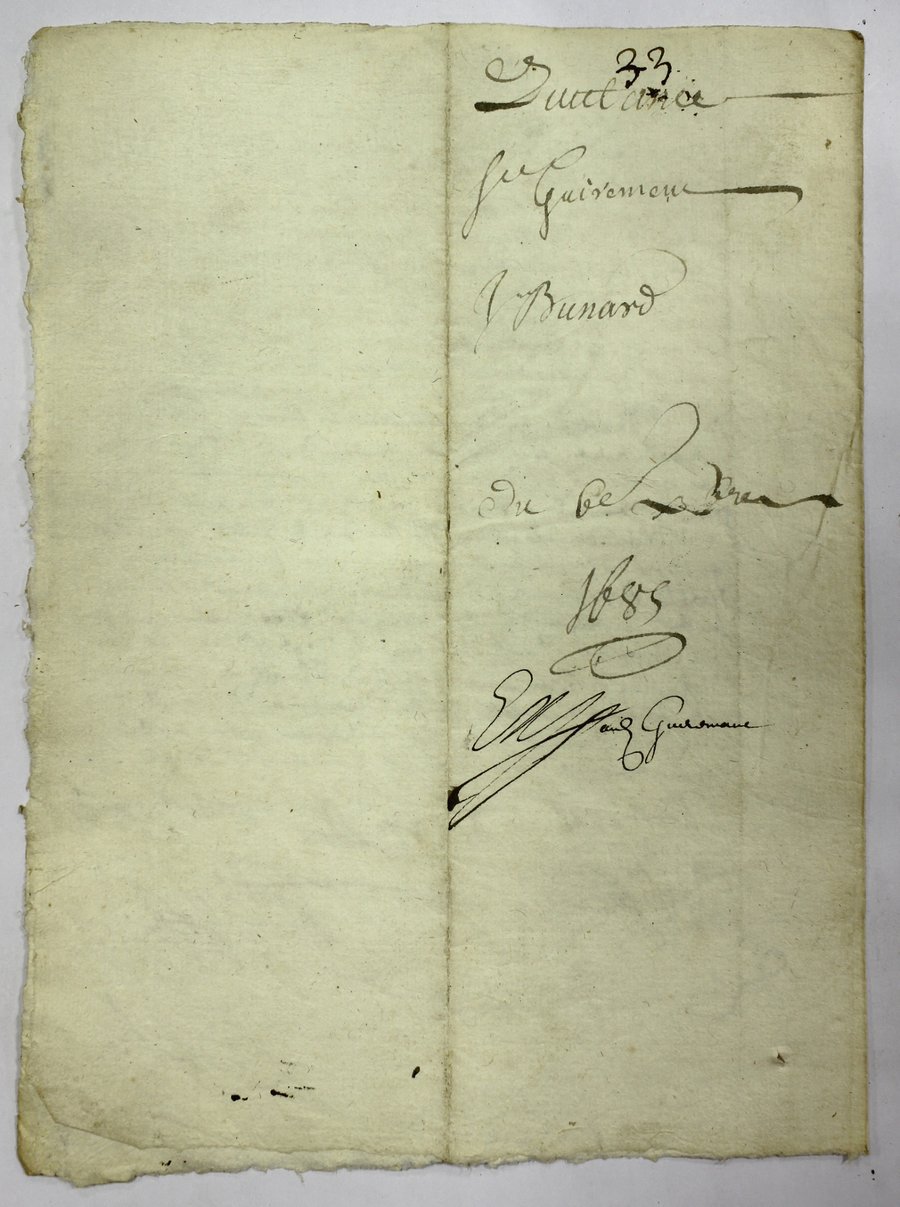 33
Quittance
Sr Guiremenc
Sr Bunard
du 6e Xbre
1685
Guiremant